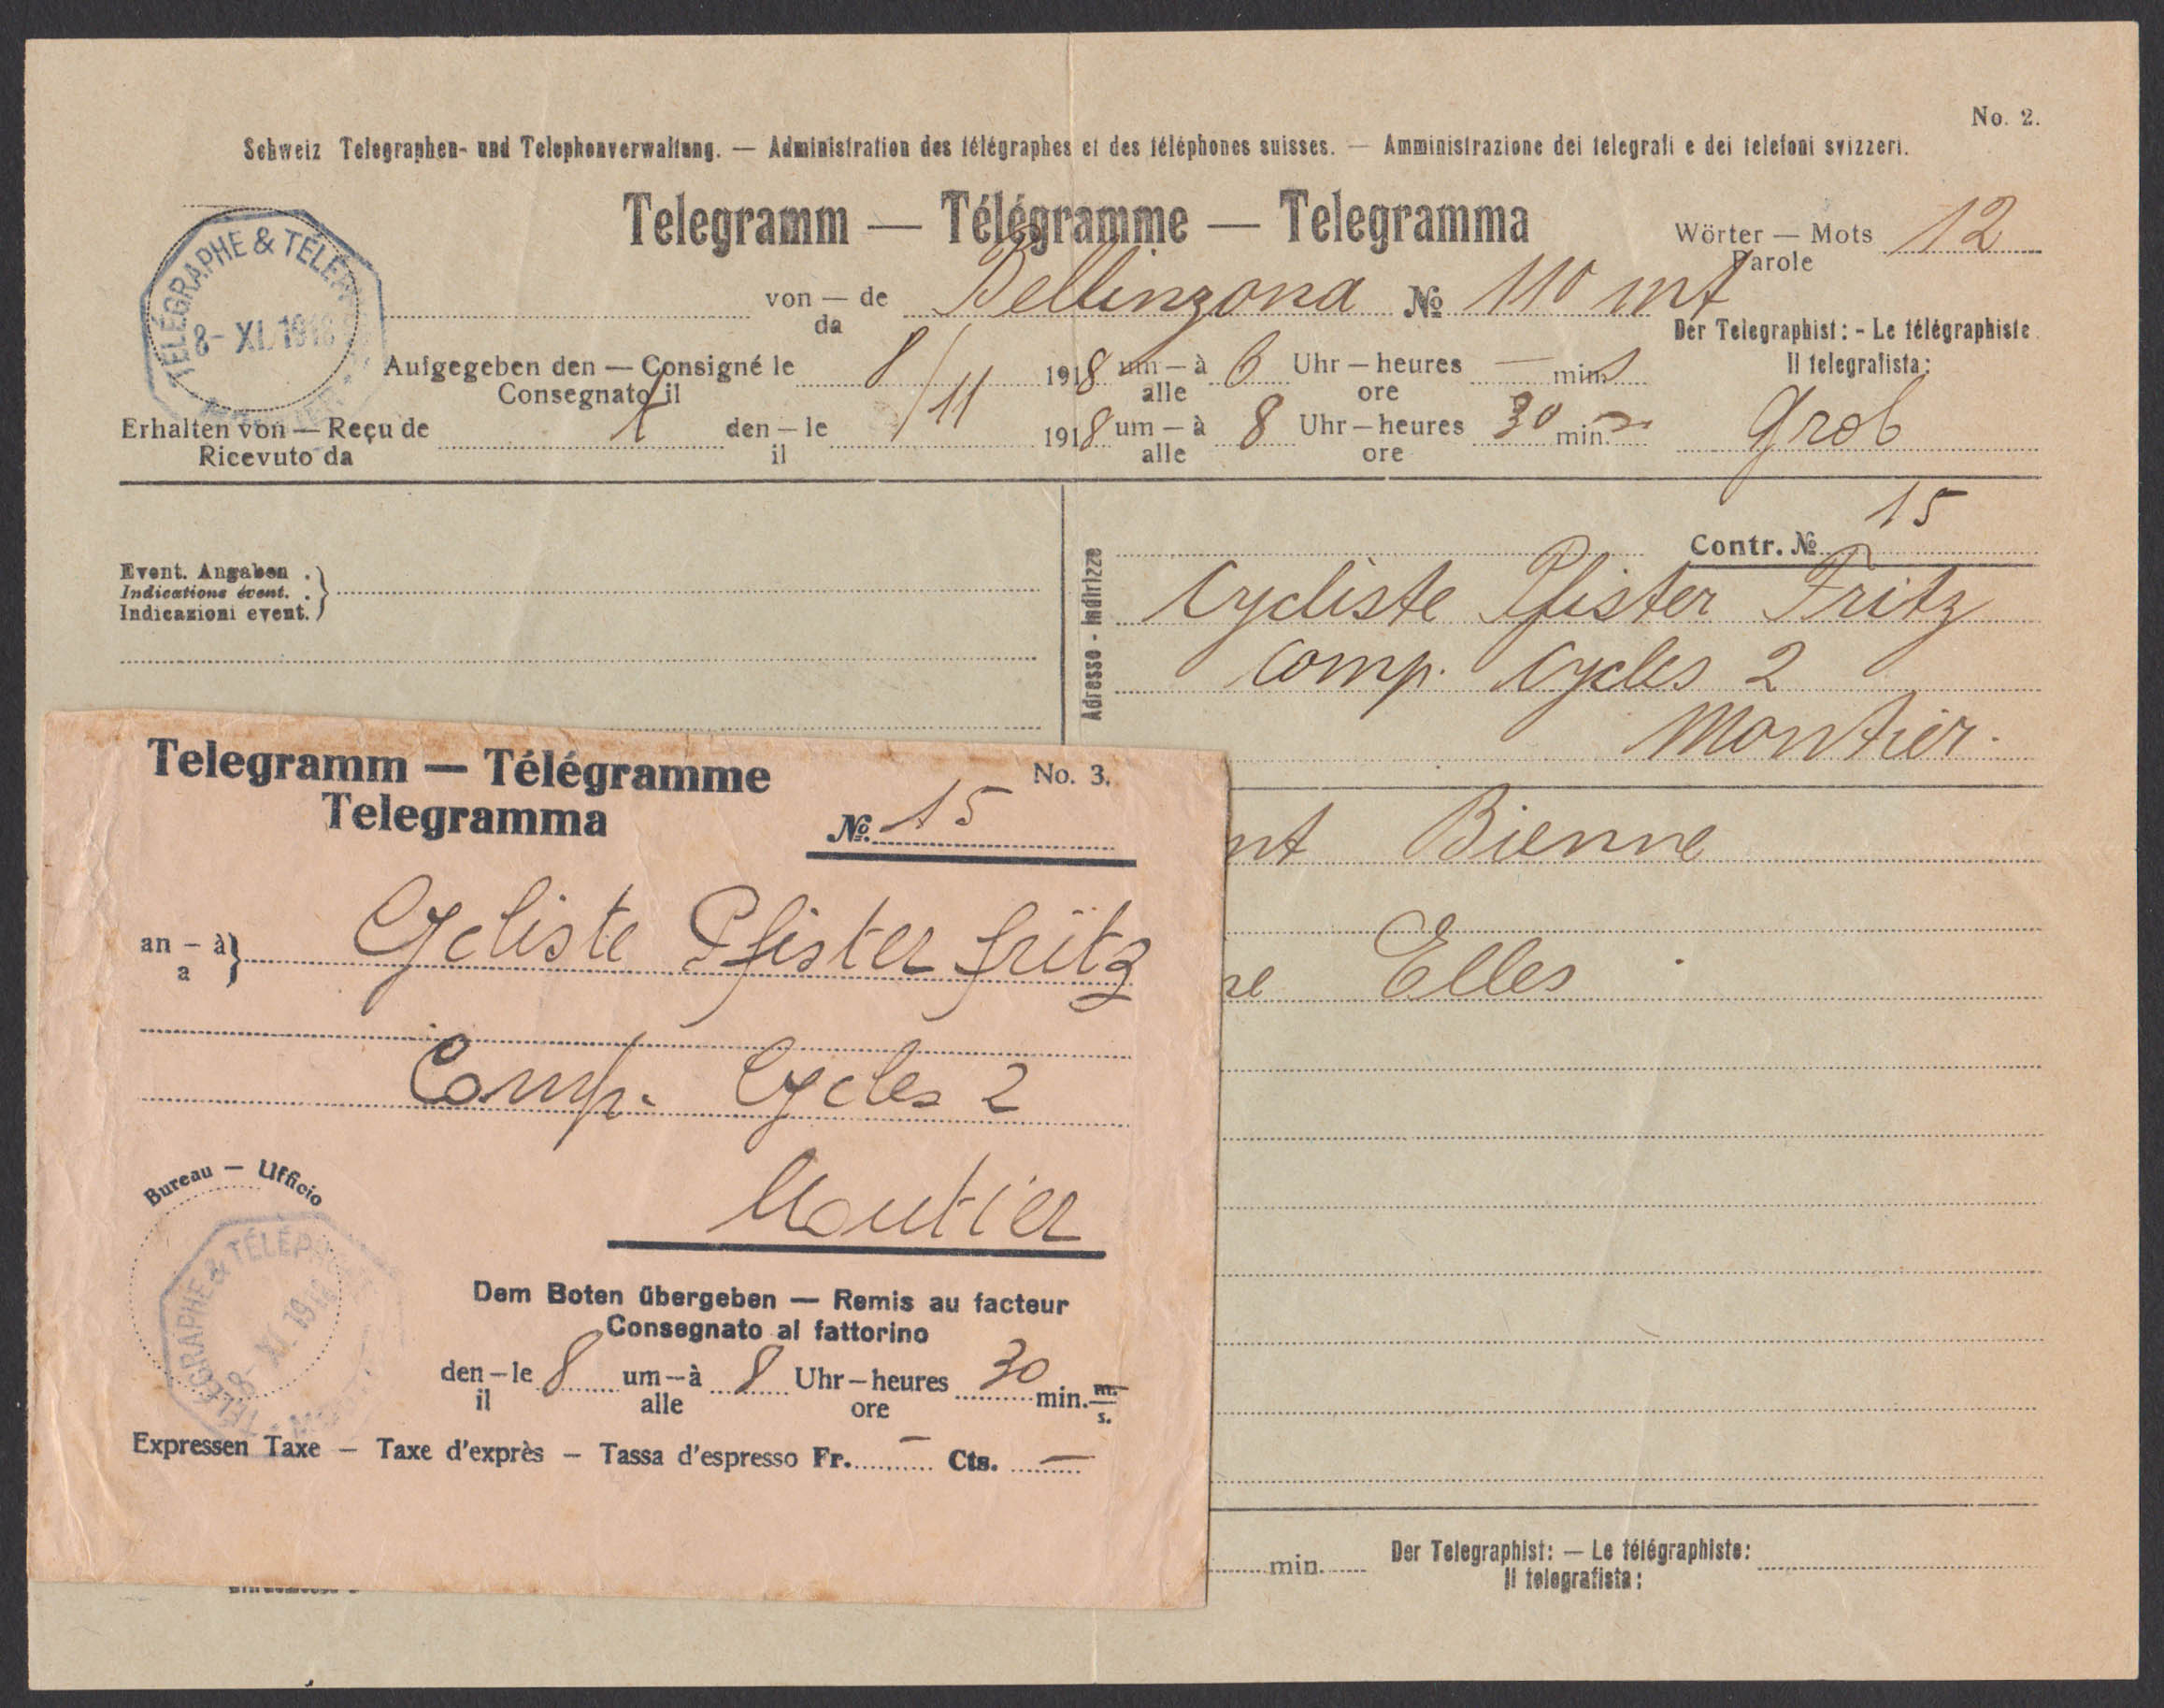 No. 2.
Schweiz Telegraphen- und Telephonverwaltung. — Administration des télégraphes et des téléphones suisses. — Amministrazione dei telegrafi e dei telefoni svizzeri.
Telegramm — Télégramme — Telegramma
Wörter — Mots 12
Parole
TÉLÉGRAPHE & TÉLÉPH
8 - XI. 1918
von — de Bellinzona № 110 mt
da
Der Telegraphist: - Le télégraphiste
Il telegrafista:
Aufgegeben den — Consigné le 8/11 1918 um — à 6 Uhr — heures — min. s
Consegnato il alle ore
Erhalten von — Reçu de den — le /11 1918 um — à 8 Uhr — heures 30 min.
Ricevuto da il alle ore
Grob
Contr. № 15
Event. Angaben
Indications évent.
Indicazioni event.
Adresse - Indirizzo
Cycliste Pfister Fritz
Comp. Cycles 2
Moutier.
nt Bienne
ne Elles
min. Der Telegraphist: — Le télégraphiste:
Il telegrafista:
Telegramm — Télégramme
No. 3.
Telegramma
№. 15
an — à
a
Cycliste Pfister Fritz
Comp. Cycles 2
Moutier
Bureau — Ufficio
TÉLÉGRAPHE & TÉLÉPH
8 - XI. 1918
Dem Boten übergeben — Remis au facteur
Consegnato al fattorino
den — le 8 um — à 8 Uhr — heures 30 min. m.
il alle ore s.
Expressen Taxe — Taxe d'exprès — Tassa d'espresso Fr. — Cts. —